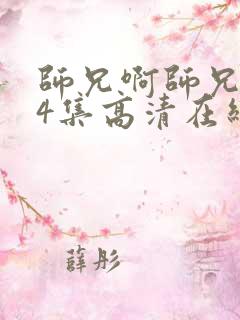 師兄啊師兄
4集高清在線
薛彤